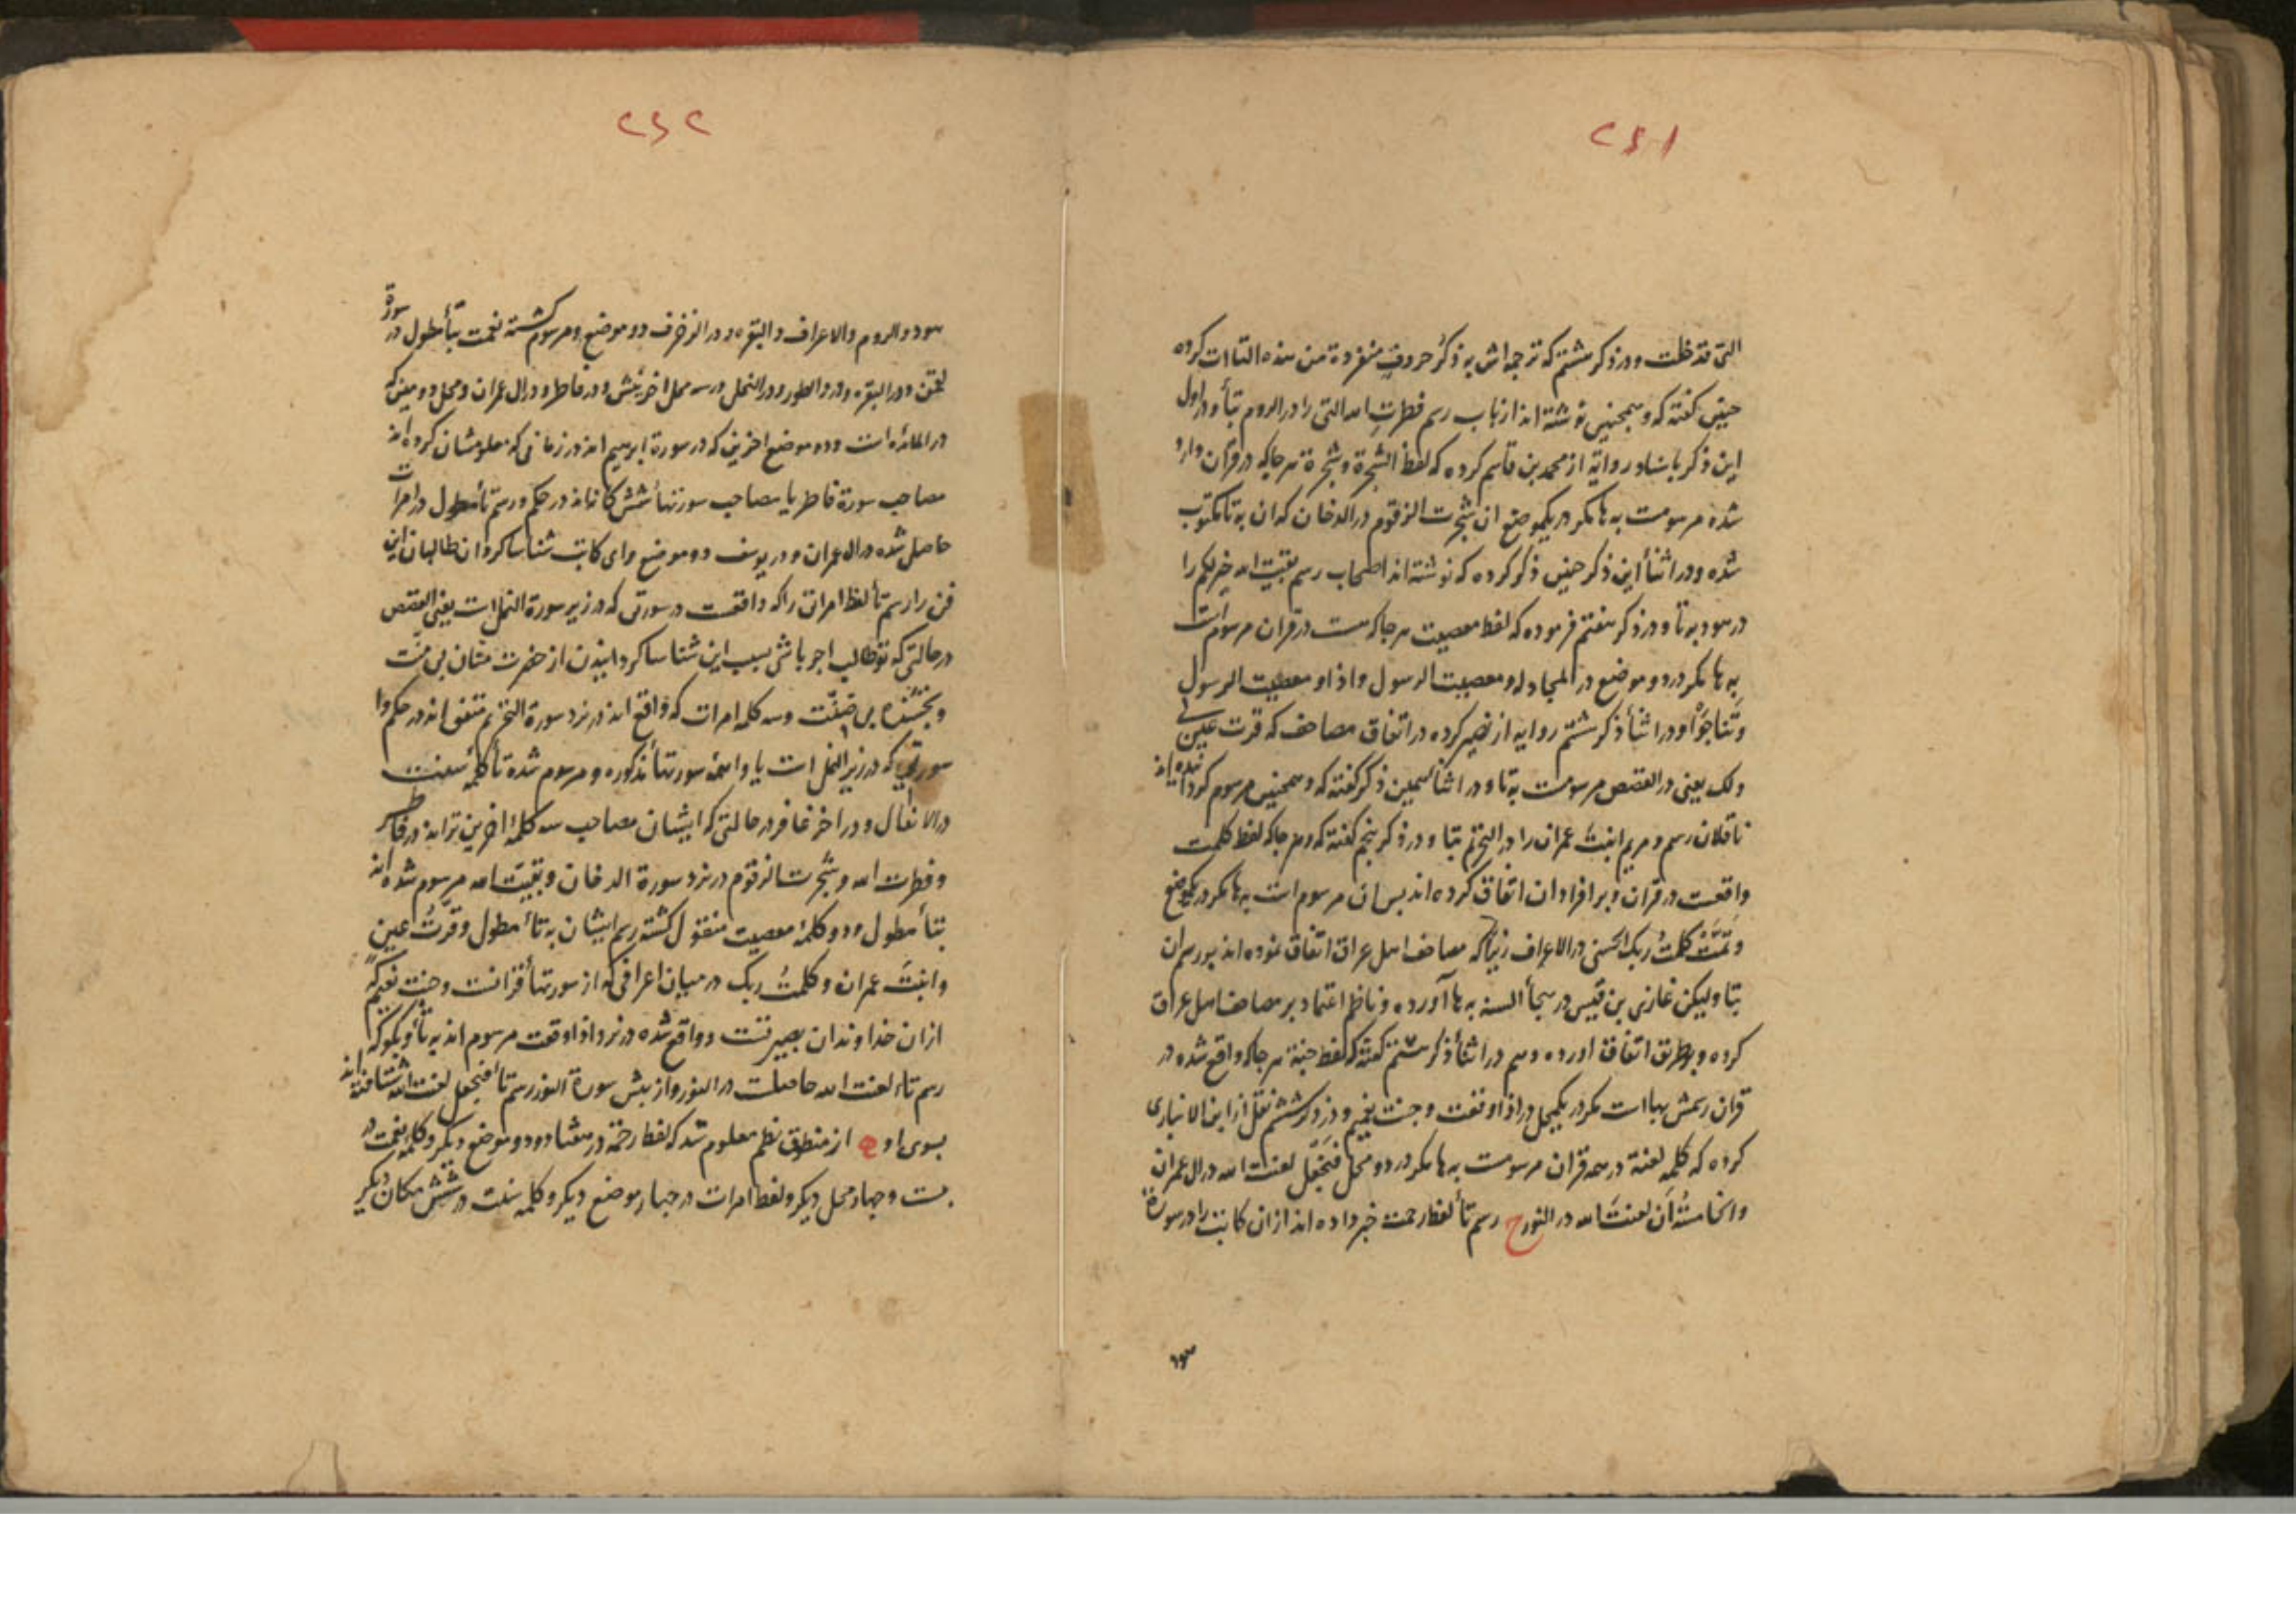 ۲۴۱
التی قد خلت و در ذکر ششم که ترجمه‌اش به ذکر حروف منفردة من هذه التاآت کرده
چنین گفته که و همچنین نوشته‌اند ارباب رسم فطرت الله التی را در الروم بتا و در اول
این ذکر باسناد روایة از محمد بن قاسم کرده که لفظ الشجرة و شجرة هر جا که در قرآن وارد
شده مرسومست به ها مکر در یکموضع ان شجرت الزقوم در الدخان که ان به تا مکتوب
شده و در اثنأ این ذکر چنین ذکر کرده که نوشته‌اند اصحاب رسم بقیت الله خیر لکم را
در هود به تا و در ذکر هفتم فرموده که لفظ معصیت هر جا که هست در قران مرسوم است
به ها مکر در دو موضع در المجادله و معصیت الرسول و اذا و معصیت الرسول
وتناجوا و در اثنأ ذکر ششم روایه از نصیر کرده در اتفاق مصاحف که قرت عین لی
ولک یعنی در القصص مرسومست به تا و در اثنأ همین ذکر گفته که و همچنین مرسوم کردانیده‌اند
ناقلان رسم و مریم ابنت عمران را در التحریم بتا و در ذکر پنجم گفته که و هر جا که لفظ کلمت
واقعست در قران و بر افراد ان اتفاق کرده‌اند پس ان مرسوم است به ها مکر در یکموضع
وتمت کلمت ربک الحسنی در الاعراف زیرا که مصاحف اهل عراق اتفاق نموده‌اند بر رسم ان
بتا ولیکن غازی بن قیس در هجأ السنه به ها آورده و ناظم اعتماد بر مصاحف اهل عراق
کرده و بر طریق اتفاق اورده و هم در اثنأ ذکر ششم گفته که لفظ جنة هر جا که واقع شده در
قران رسمش بها است مکر در یکمحل در اذا وقعت و جنت نعیم و در ذکر ششم نقل از ابن الانباری
کرده که کلمه لعنة در همه قران مرسومست به ها مکر در دو محل فنجعل لعنت الله در ال عمران
والخامسة ان لعنت الله در النور ح رسم تأ لفظ رحمت خبر داده‌اند ازان کاتب را در سورة
هود
۲۴۲
هود و الروم و الاعراف و البقره و در الزخرف دو موضع و مرسوم کشته نعمت بتأ طول در سورة
لقمن و در البقره و در والطور و در النحل در سه محل اخریش و در فاطر و در ال عمران و محل دومین که
در المائده است و دو موضع اخرین که در سورة ابرهیم اند در زمانی که معلومشان کرده‌اند
مصاحب سورة فاطر یا مصاحب سورتهأ شش کانه‌اند در حکم و رسم تأ مطول در امرات
حاصل شده در ال عمران و در یوسف دو موضع و ای کاتب شناسا کردان طالبان این
فن را رسم تأ لفظ امرات را که واقعست در سورتی که در زیر سورة النمل است یعنی القصص
در حالتی که تو طالب اجر باشی بسبب این شناسا کردانیدن از حضرت منّان بی منّت
و بخشنده بی ضنّت و سه کلمه امرات که واقع‌اند در نزد سورة التحریم متفق‌اند در حکم وا
سورتی که در زیر النمل است یا وا همه سورتهأ مذکوره و مرسوم شده تأ کلمه سنت
در الانفال و در اخر غافر در حالتی که ایشان مصاحب سه کلمه اخرین تواند در فاطر
و فطرت الله و شجرت الزقوم در نزد سورة الدخان و بقیت الله مرسوم شده‌اند
بتأ مطول و دو کلمه معصیت منقول کشته رسم ایشان به تأ مطول و قرت عین
و ابنت عمران و کلمت ربک در میان اعرافی که از سورتهأ قرانست و جنت نعیم که
ازان خداوندان بصیرتست و واقع شده در نزد اذا وقعت مرسوم‌اند به تأ و بکو که
رسم تاء لعنت الله حاصلست در النور و از پیش سورة النور رسم تأ فنجعل لعنت الله شتافته‌اند
بسوی او ح از منطوق نظم معلوم شد که لفظ رحمة در هفتاد و دو موضع دیکر و کلمه نعمت در
بیست و چهار محل دیکر و لفظ امرات در چهار موضع دیکر و کلمه سنت در شش مکان دیکر